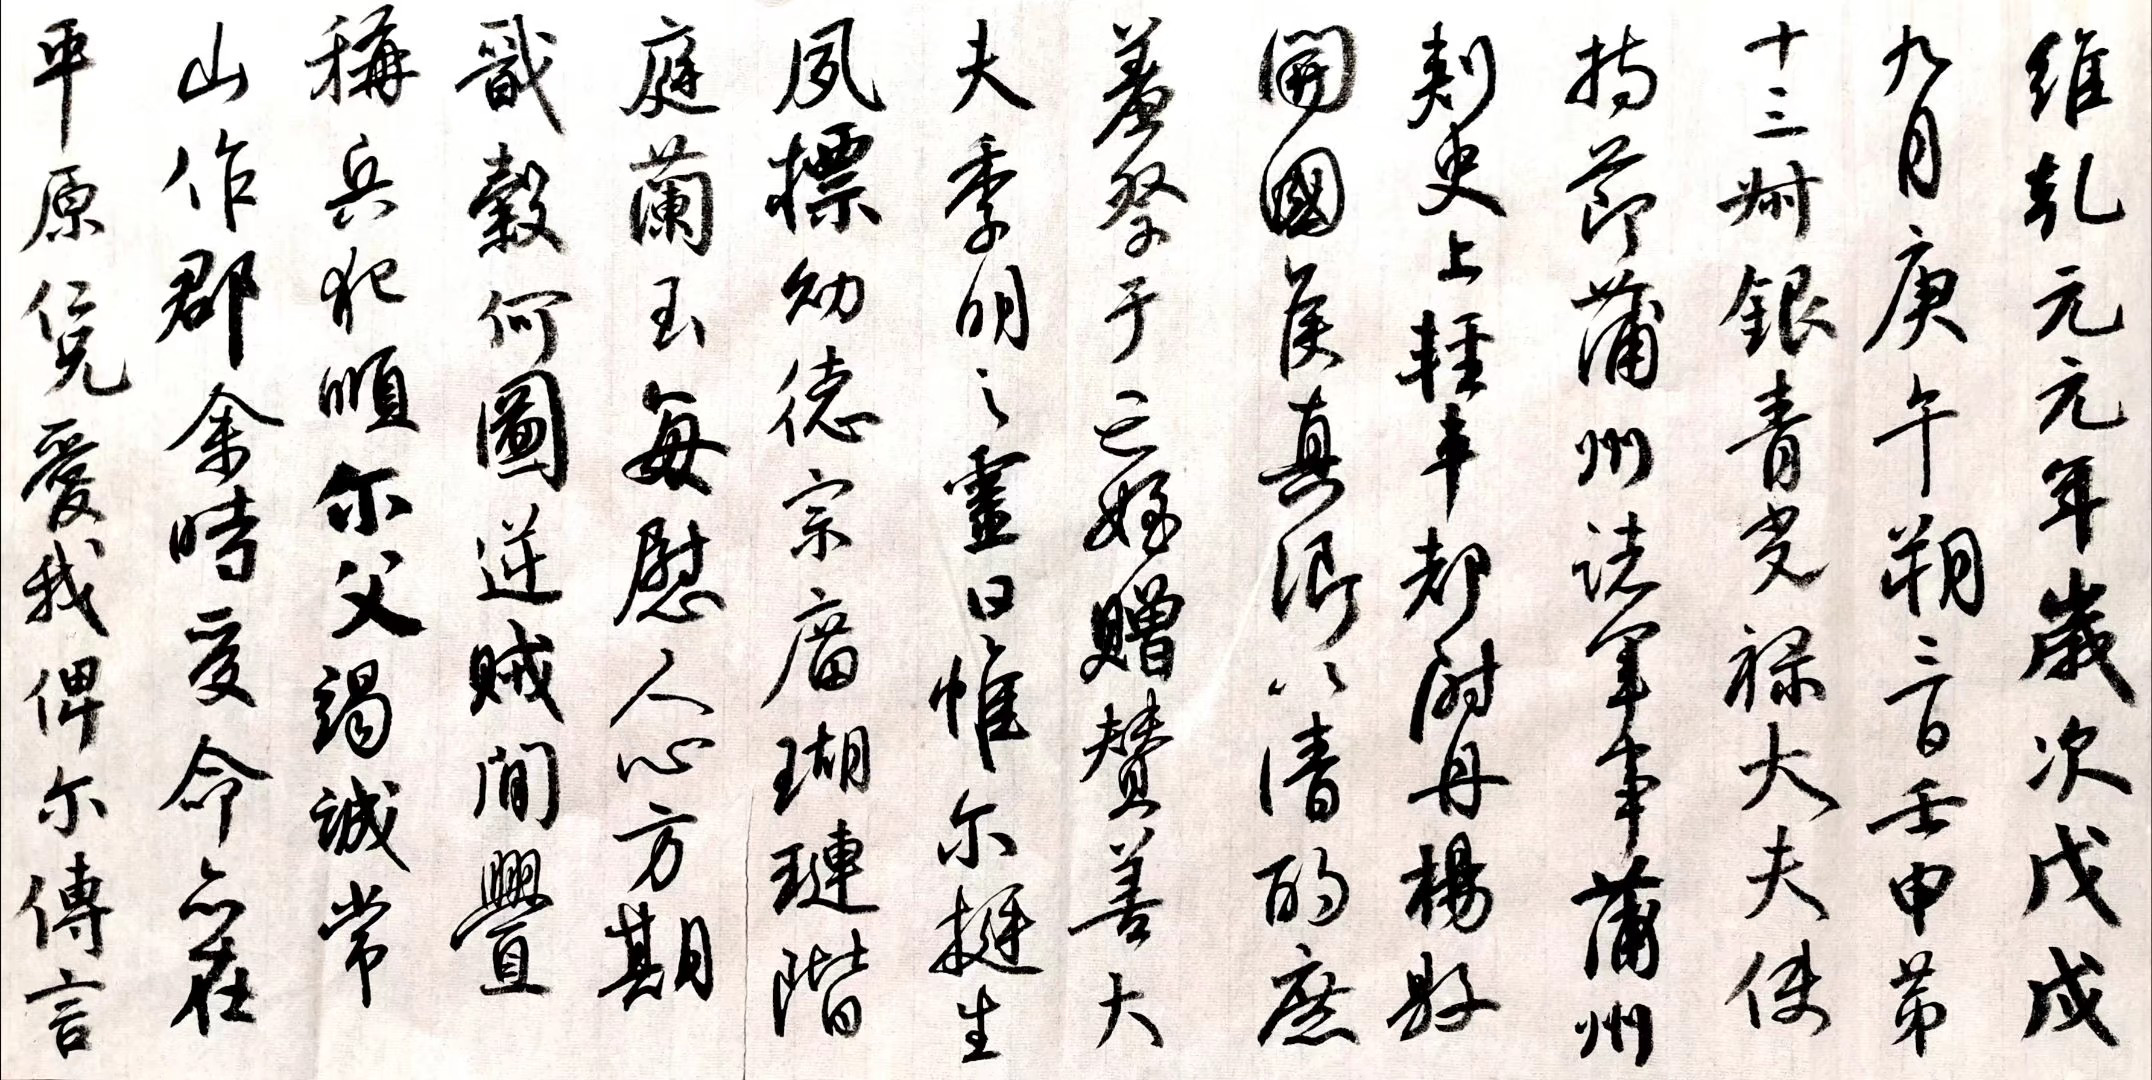 維乹元元年歲次戊戌
九月庚午朔三日壬申第
十三叔銀青光祿大夫使
持節蒲州諸軍事蒲州
刾史上輕車都尉丹楊縣
開國侯真卿以清酌庶
羞祭于亡姪贈贊善大
夫季明之靈曰惟尔挺生
夙標幼德宗廟瑚璉階
庭蘭玉每慰人心方期
戩穀何圖逆賊閒釁
稱兵犯順尔父竭誠常
山作郡余時受命亦在
平原仁兄愛我俾尔傳言